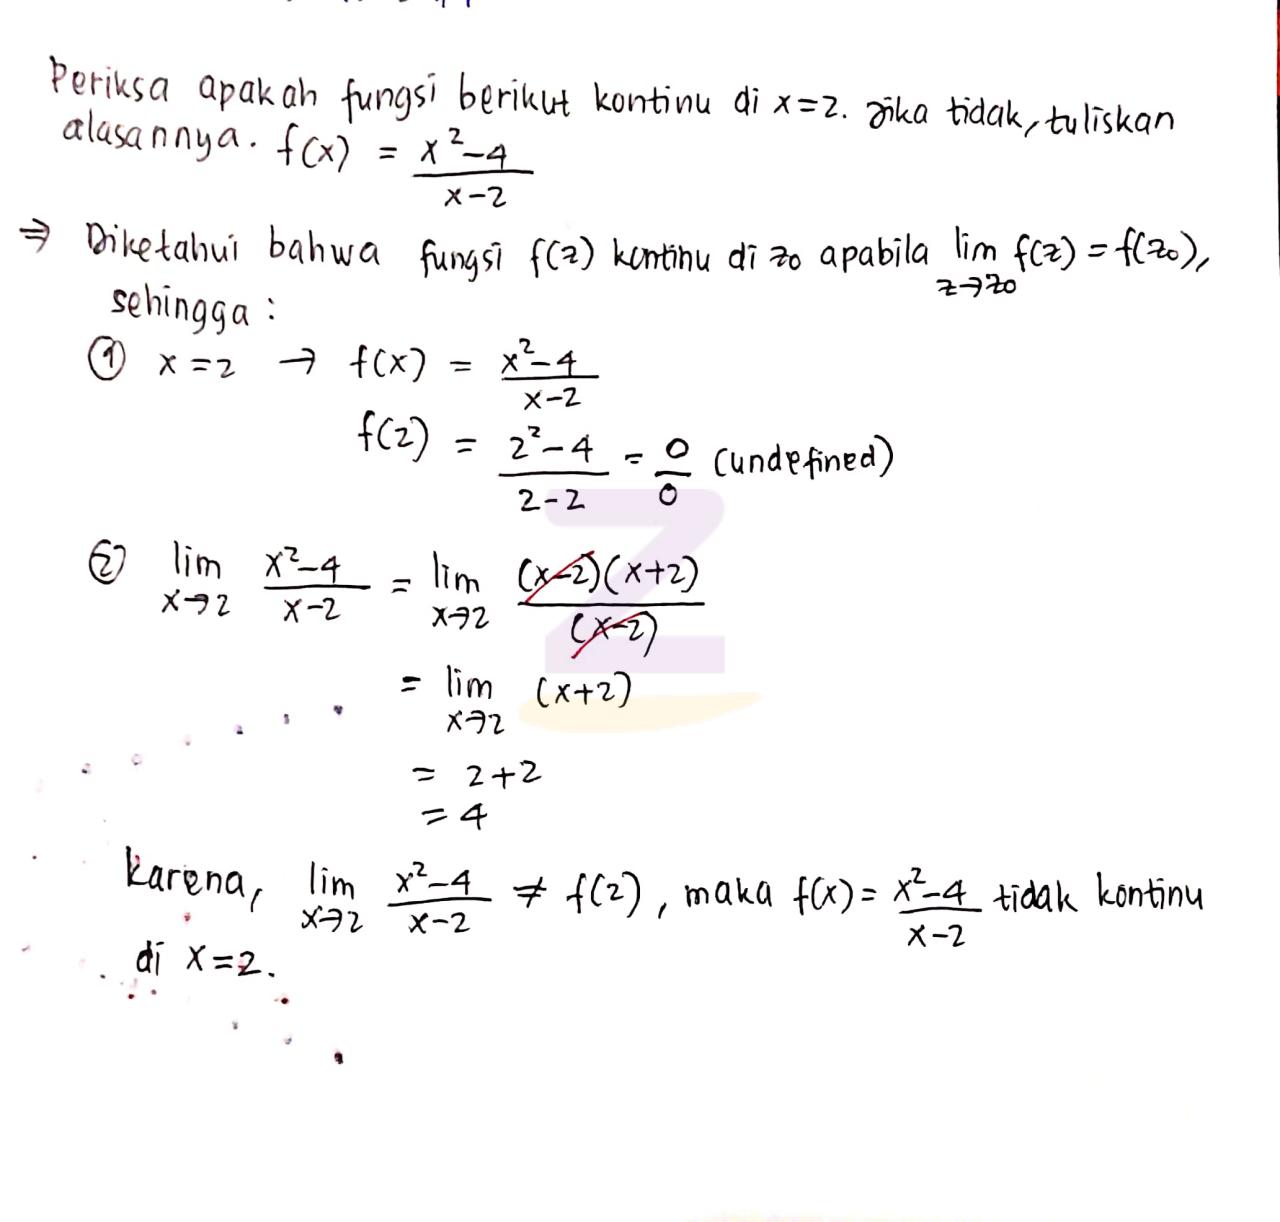 Periksa apakah fungsi berikut kontinu di x=2. Jika tidak, tuliskan
alasannya. f(x) = x²-4
x-2
⇒ Diketahui bahwa fungsi f(z) kontinu di z0 apabila lim f(z) = f(z0),
z→z0
sehingga :
① x=2 → f(x) = x²-4
x-2
f(2) = 2²-4 = 0 (undefined)
2-2 0
② lim x²-4 = lim (x-2)(x+2)
x→2 x-2 x→2 (x-2)
= lim (x+2)
x→2
= 2+2
= 4
Karena, lim x²-4 ≠ f(2), maka f(x) = x²-4 tidak kontinu
x→2 x-2 x-2
di x=2.